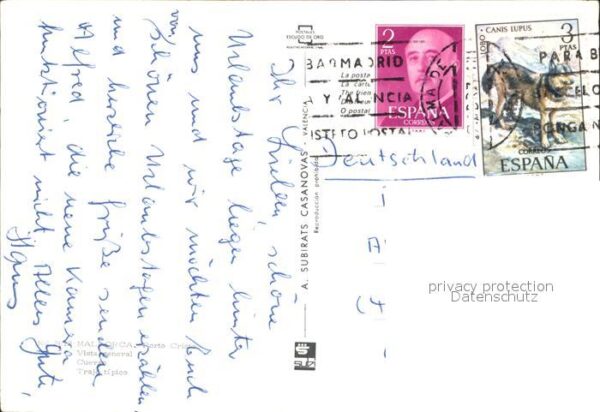 Ihr Lieben, schöne
Urlaubstage liegen hinter
uns und wir möchten Euch
von schönen Urlaubstagen erzählen
und herzliche Grüße senden
Alfred, die neue Kamera
funktioniert nicht Alles Gute,
Hans
MALLORCA, Porto Cristo
Vista general
Cuevas
Traje típico
POSTALES
ESCUDO DE ORO
A. SUBIRATS CASANOVAS - VALENCIA
Reproducción prohibida
La posta
La carte
The frie
O postal
2
PTAS
ESPAÑA
CORREOS
LOBO - CANIS LUPUS
3
PTAS
CORREOS
ESPAÑA
BARMADRID
Y VALENCIA
DISTRITO POSTAL
PARA B
PONGA
Deutschland
privacy protection
Datenschutz